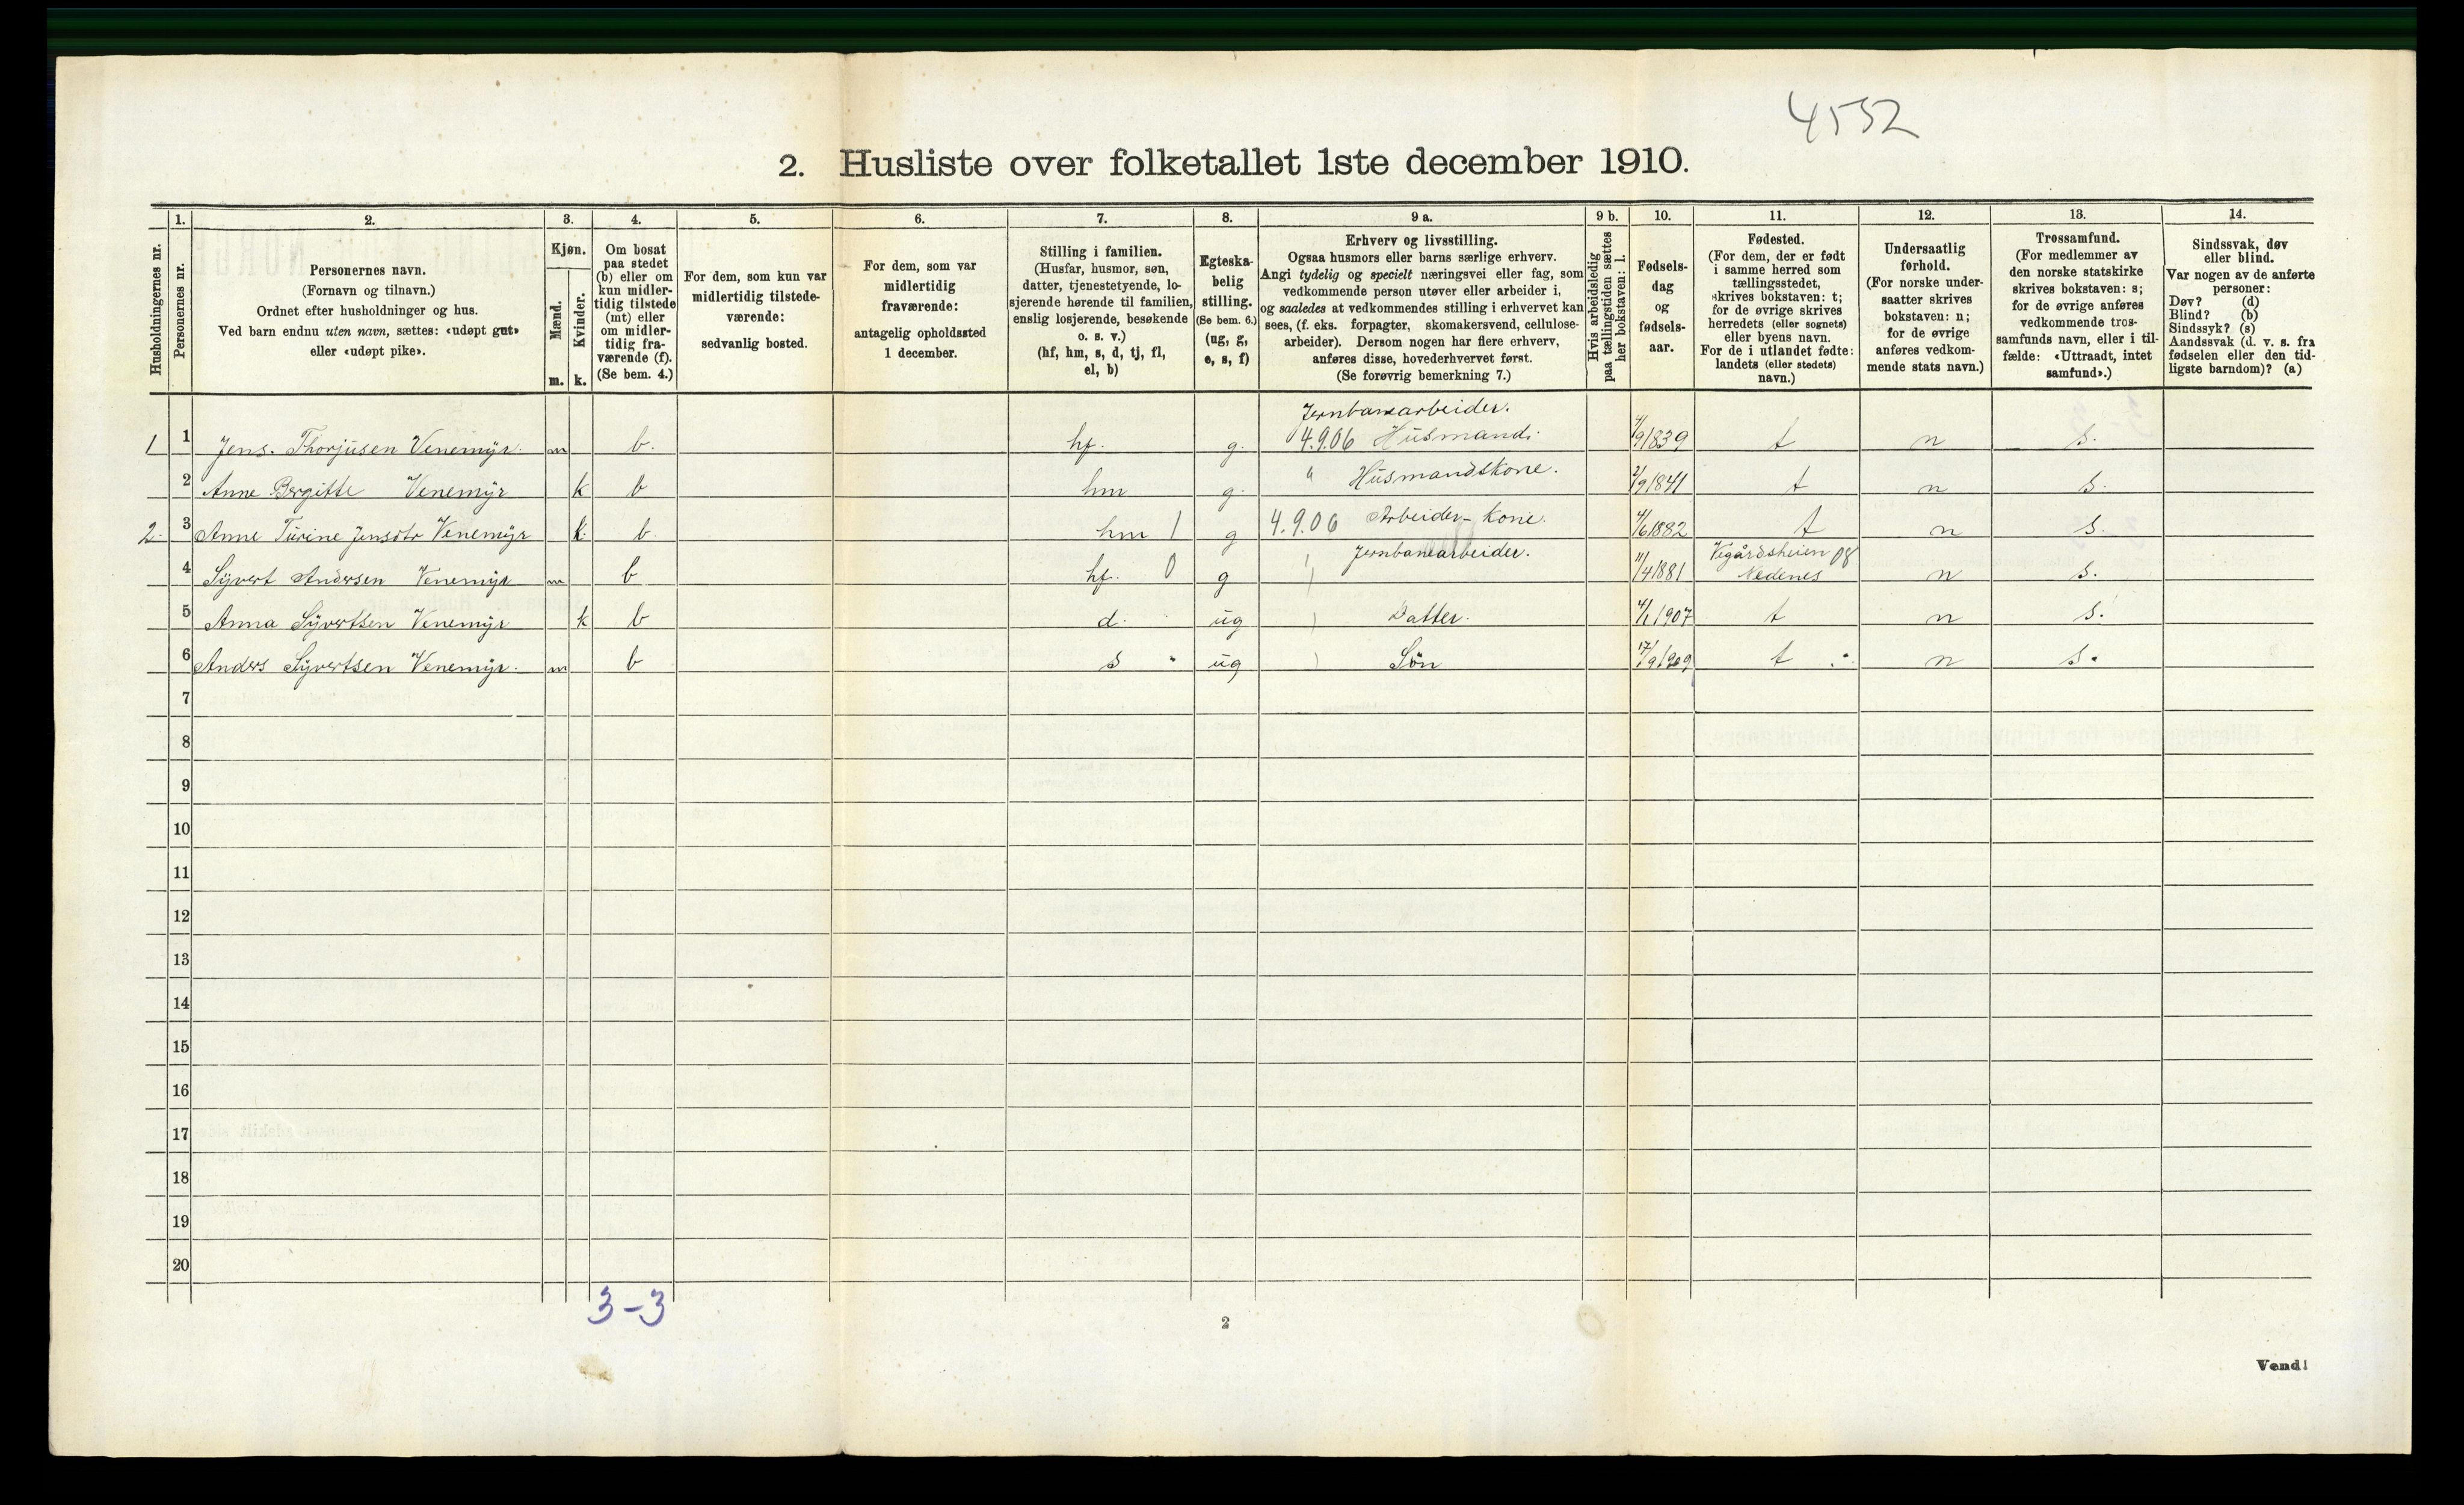 4552
2. Husliste over folketallet 1ste december 1910.
Husholdningernes nr.
1.
Personernes nr.
2.
Personernes navn.
(Fornavn og tilnavn.)
Ordnet efter husholdninger og hus.
Ved barn endnu uten navn, sættes: «udøpt gut»
eller «udøpt pike».
3.
Kjøn.
Mænd.
Kvinder.
m. k.
4.
Om bosat
paa stedet
(b) eller om
kun midler-
tidig tilstede
(mt) eller
om midler-
tidig fra-
værende (f).
(Se bem. 4.)
5.
For dem, som kun var
midlertidig tilstede-
værende:
sedvanlig bosted.
6.
For dem, som var
midlertidig
fraværende:
antagelig opholdssted
1 december.
7.
Stilling i familien.
(Husfar, husmor, søn,
datter, tjenestetyende, lo-
sjerende hørende til familien,
enslig losjerende, besøkende
o. s. v.)
(hf, hm, s, d, tj, fl,
el, b)
8.
Egteska-
belig
stilling.
(Se bem. 6.)
(ug, g,
e, s, f)
9 a.
Erhverv og livsstilling.
Ogsaa husmors eller barns særlige erhverv.
Angi tydelig og specielt næringsvei eller fag, som
vedkommende person utøver eller arbeider i,
og saaledes at vedkommendes stilling i erhvervet kan
sees, (f. eks. forpagter, skomakersvend, cellulose-
arbeider). Dersom nogen har flere erhverv,
anføres disse, hovederhvervet først.
(Se forøvrig bemerkning 7.)
9 b.
Hvis arbeidsledig
paa tællingstiden sættes
her bokstaven: l.
10.
Fødsels-
dag
og
fødsels-
aar.
11.
Fødested.
(For dem, der er født
i samme herred som
tællingsstedet,
skrives bokstaven: t;
for de øvrige skrives
herredets (eller sognets)
eller byens navn.
For de i utlandet fødte:
landets (eller stedets)
navn.)
12.
Undersaatlig
forhold.
(For norske under-
saatter skrives
bokstaven: n;
for de øvrige
anføres vedkom-
mende stats navn.)
13.
Trossamfund.
(For medlemmer av
den norske statskirke
skrives bokstaven: s;
for de øvrige anføres
vedkommende tros-
samfunds navn, eller i til-
fælde: «Uttraadt, intet
samfund».)
14.
Sindssvak, døv
eller blind.
Var nogen av de anførte
personer:
Døv? (d)
Blind? (b)
Sindssyk? (s)
Aandssvak (d. v. s. fra
fødselen eller den tid-
ligste barndom)? (a)
Jernbanearbeider.
1 1 Jens. Thorjusen Venemyr. m b. hf. g. 4.9.06 Husmand. 4/9 1839 t n s.
2 Anne Bergitte Venemyr k b hm g. " Husmandskone. 2/9 1841 t n s.
2. 3 Anne Turine Jensdtr Venemyr k. b hm 1 g 4.9.06 Arbeider-kone. 4/6 1882 t n s.
4 Syvert Andersen Venemyr m b hf. 0 g Jernbanearbeider. 11/4 1881 Vegårdsheien 08
Nedenes n s.
5 Anna Syvertsen Venemyr k b d. ug Datter. 4/1 1907 t n s.
6 Anders Syvertsen Venemyr. m b s ug Søn 17/9 1909 t n s.
7
8
9
10
11
12
13
14
15
16
17
18
19
20
3-3
2
Vend!